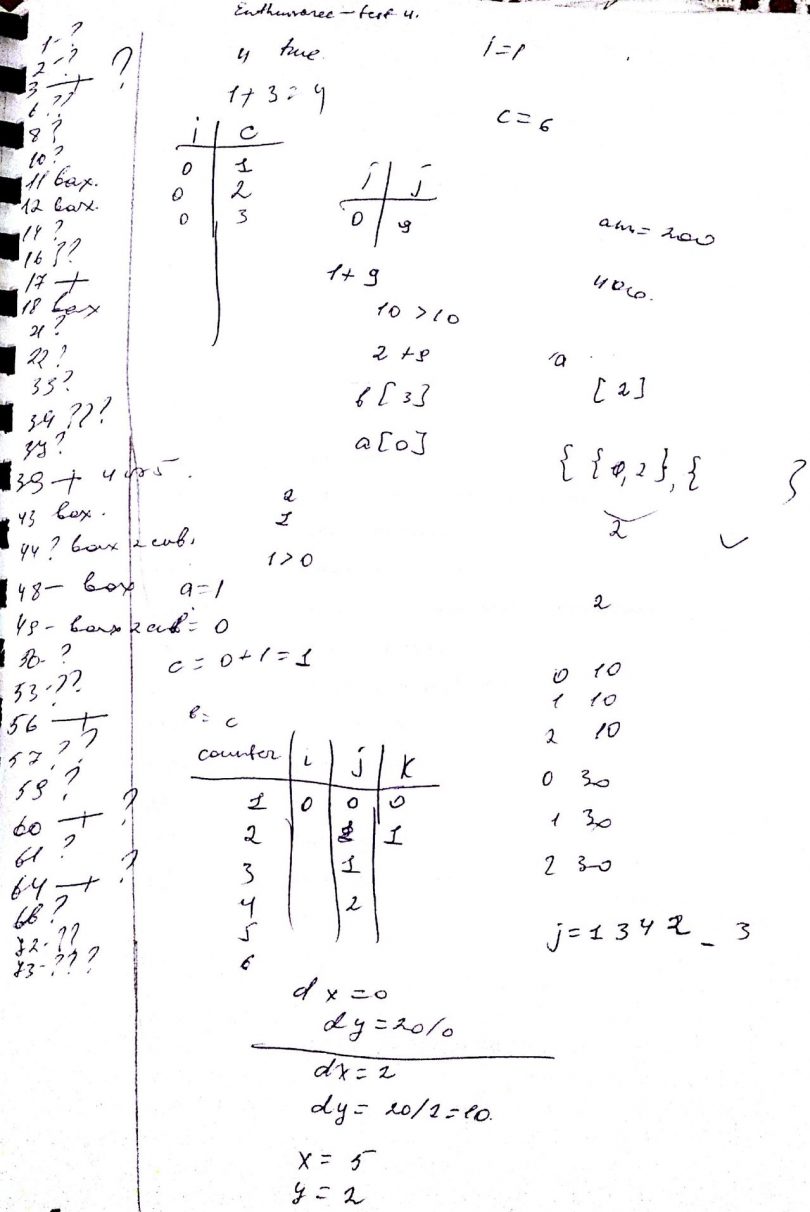 test 4.
1-?
2-?
3 + ?
6 ??
8 ?
10 ?
11 вах.
12 вах.
14 ?
16 ??
17 +
18 вах
21 ?
22 ?
33 ?
34 ???
37 ?
39 +
43 вох.
44 ?
48 – вох
49 -
50 - ?
53 - ??
56 +
57 ??
59 ?
60 + ?
61 ?
64 + ?
66 ?
72 - ??
73 - ???
4 true
1+3=4
i c
0 1
0 2
0 3
i j
0 9
1+9
10 >10
2 +9
b[3]
a[0]
2
1
1>0
a=1
= 0
c = 0+1=1
b= c
counter i j k
1 0 0 0
2 1
3 1
4 2
5
6
dx=0
dy=20/0
dx=2
dy= 20/2=10.
x= 5
y= 2
i=1
c=6
am=200
400.
a
[2]
{ {0,2},{ }
2
2
0 10
1 10
2 10
0 30
1 30
2 30
j=1 3 4 2 - 3